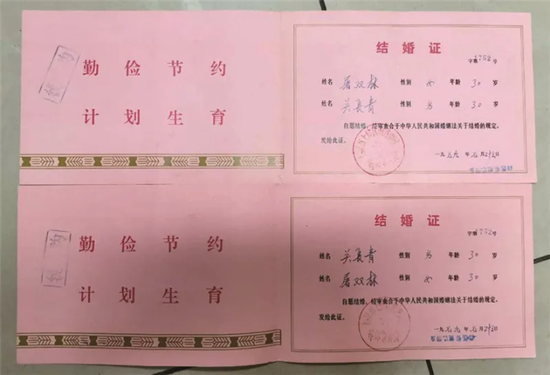 勤俭节约
计划生育
结婚证
字第1762号
姓名 双林 性别 女 年龄 30 岁
姓名 关长青 性别 男 年龄 30 岁
自愿结婚，经审查合于中华人民共和国婚姻法关于结婚的规定，
发给此证。
一九七九年 月 日
勤俭节约
计划生育
结婚证
字第1762号
姓名 关长青 性别 男 年龄 30 岁
姓名 双林 性别 女 年龄 30 岁
自愿结婚，经审查合于中华人民共和国婚姻法关于结婚的规定，
发给此证。
一九七九年 月 日